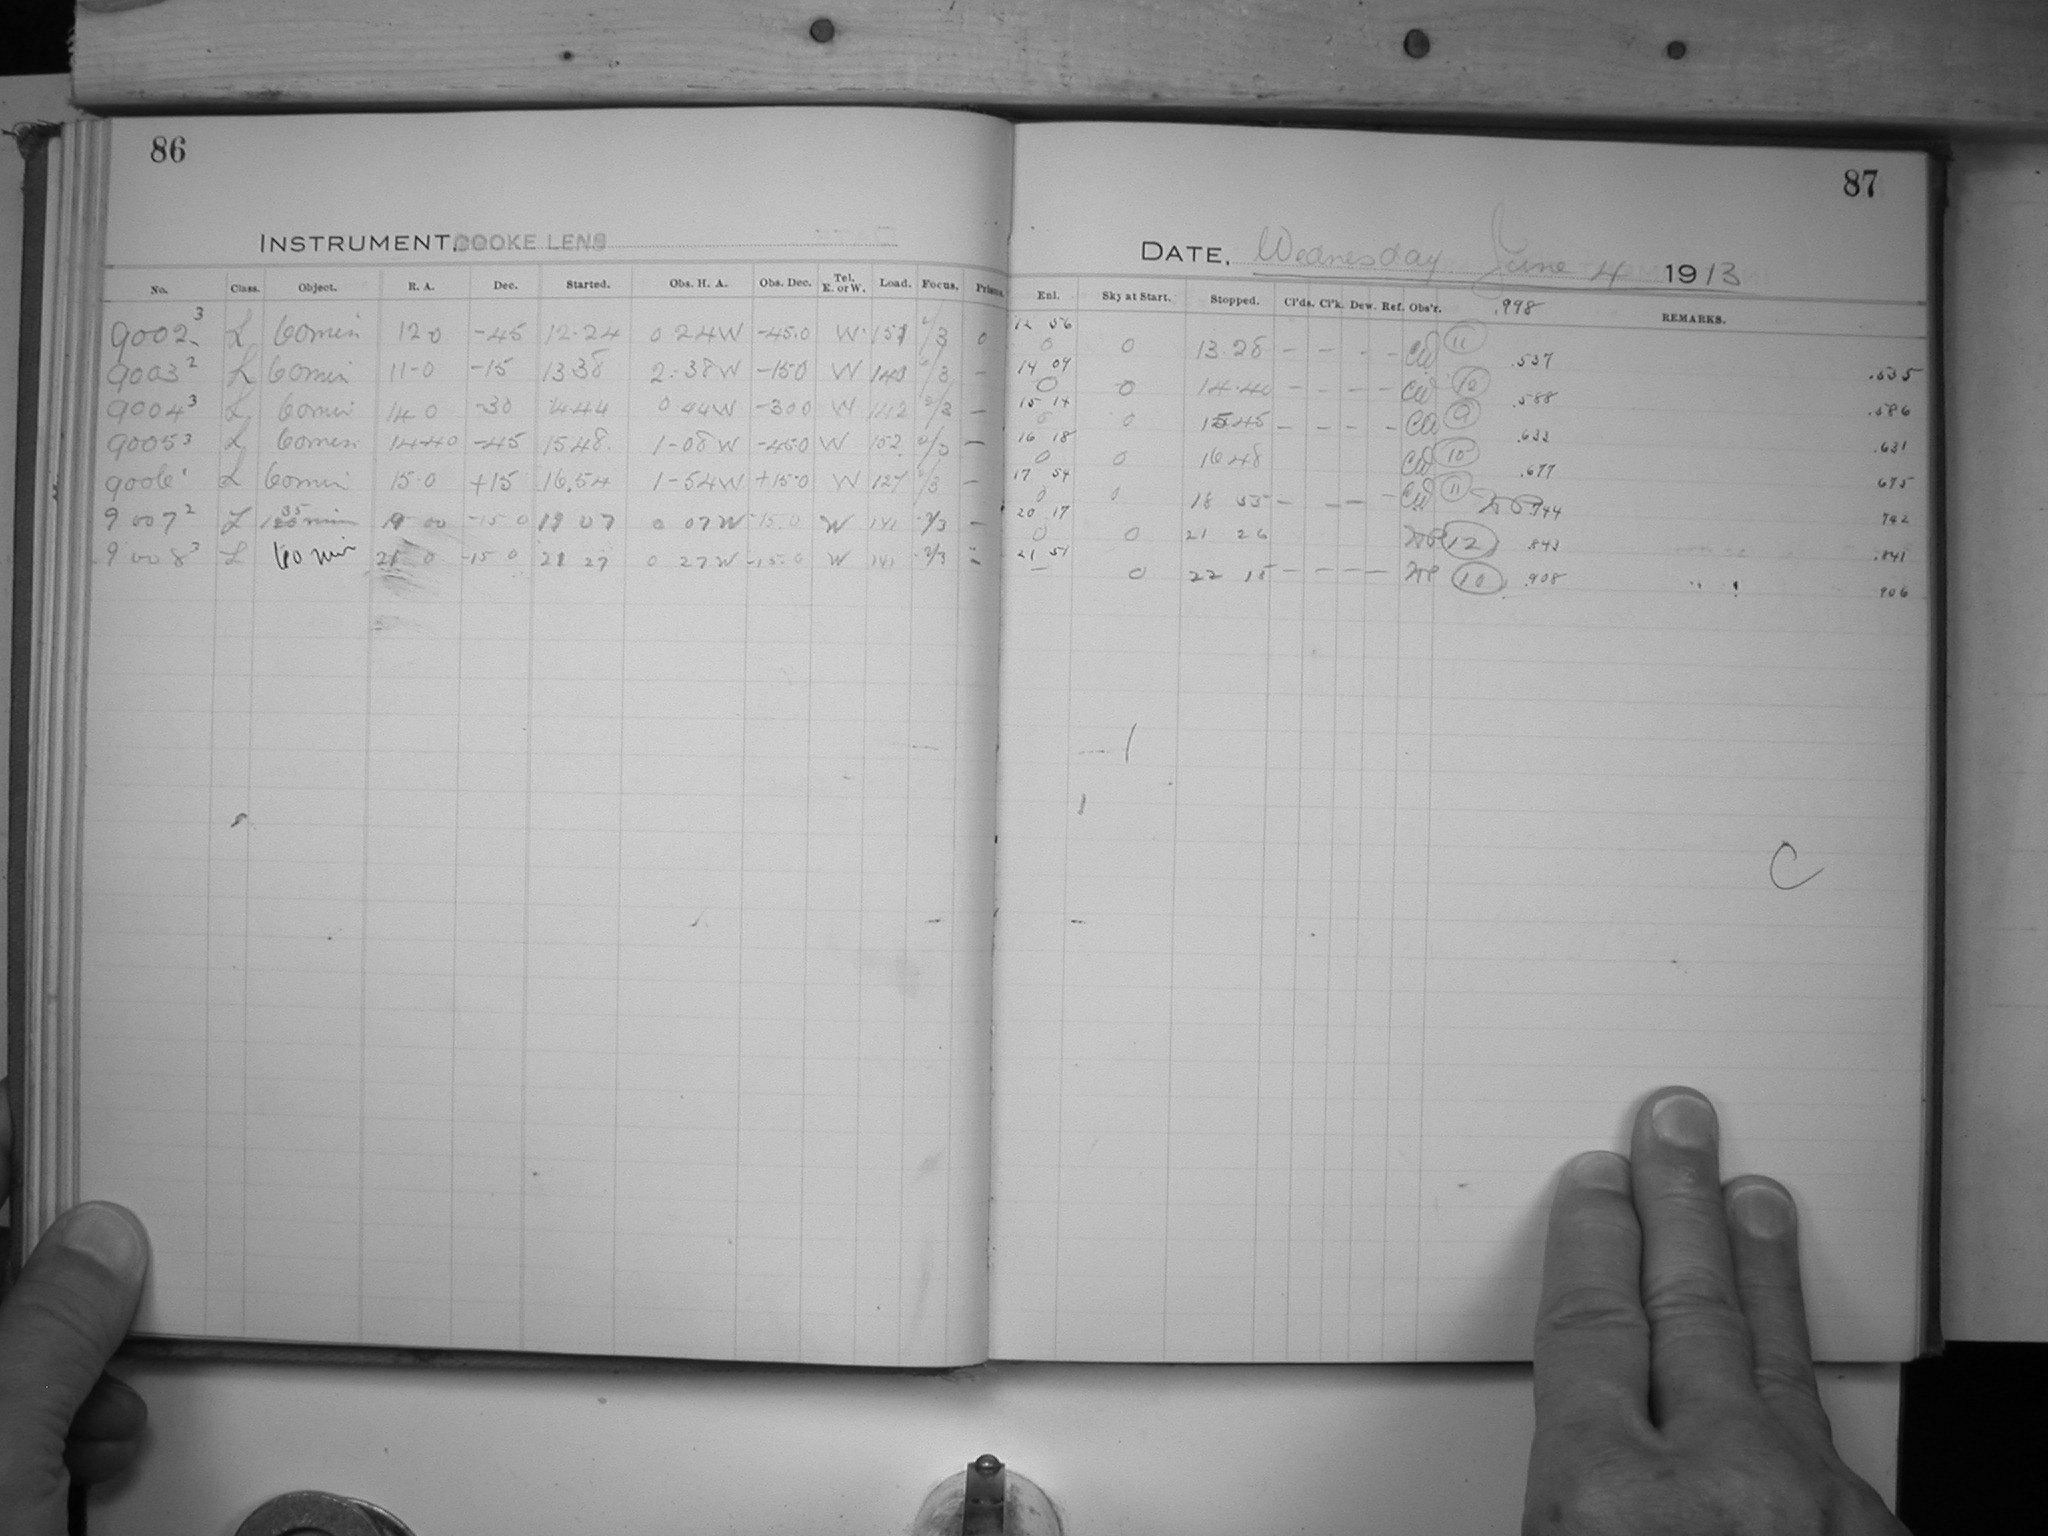 86
INSTRUMENT. COOKE LENS
No. Class. Object. R. A. Dec. Started. Obs. H. A. Obs. Dec. Tel. E. or W. Load. Focus. Prisms.
9002 3 L 60 min 12 0 -45 12.24 0 24 W -45.0 W 151 /3 0
9003 2 L 60 min 11-0 -15 13 38 2.38 W -15 0 W 140 /3 -
9004 3 L 60 min 14 0 -30 1444 0 44 W -300 W 142 /3 -
9005 3 L 60 min 14-40 -45 1548. 1-08 W -450 W 152 /3 -
9006 1 L 60 min 15.0 +15 16.54 1-54 W +15.0 W 127 /3 -
9007 2 L 35 min 19 00 -15 0 19 07 0 07 W -15.0 W 141 /3 -
9008 3 L 60 min 21 0 -15 0 21 27 0 27 W -15.0 W 141 /3
87
DATE. Wednesday June 4 1913
Enl. Sky at Start. Stopped. Cl'ds. Cl'k. Dew. Ref. Obs'r. .998 REMARKS.
12 56
0 0 13.28 - - - - CW 11 .537 .535
14 09
0 0 14.40 - - - - CW 12 .588 .586
15 14
0 0 1545 - - - - CW 9 .633 .631
16 18
0 0 1648 CW 10 .677 675
17 54
0 0 18 55 - - - - CW 11 .744 742
20 17
0 0 21 26 12 .843 .841
21 51
- 0 22 18 - - - - 10 .908 906
C